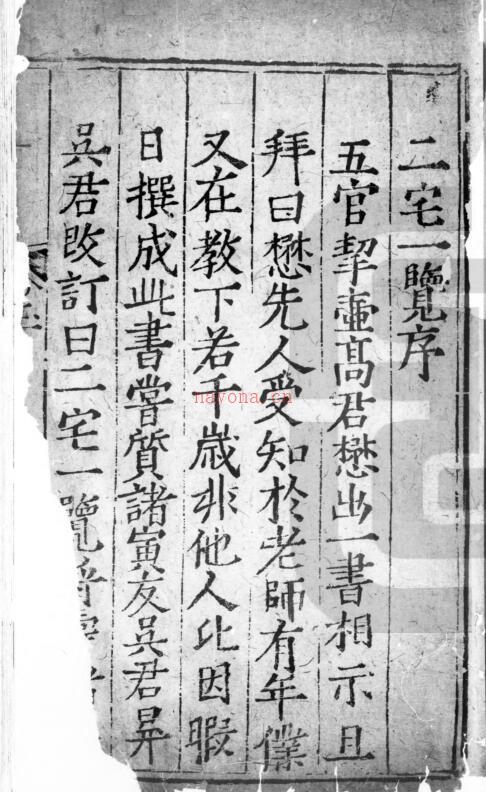 二宅一覽序
五官挈壺高君懋出一書相示且
拜曰懋先人受知於老師有年僕
又在教下若干歲非他人比因暇
日撰成此書嘗質諸寅友吳君昇
吳君改訂曰二宅一覽
nayona.cn